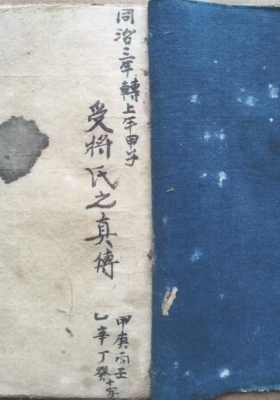 同治三年轉上午甲子
受將氏之真傳
甲庚丙壬
乙辛丁癸十字